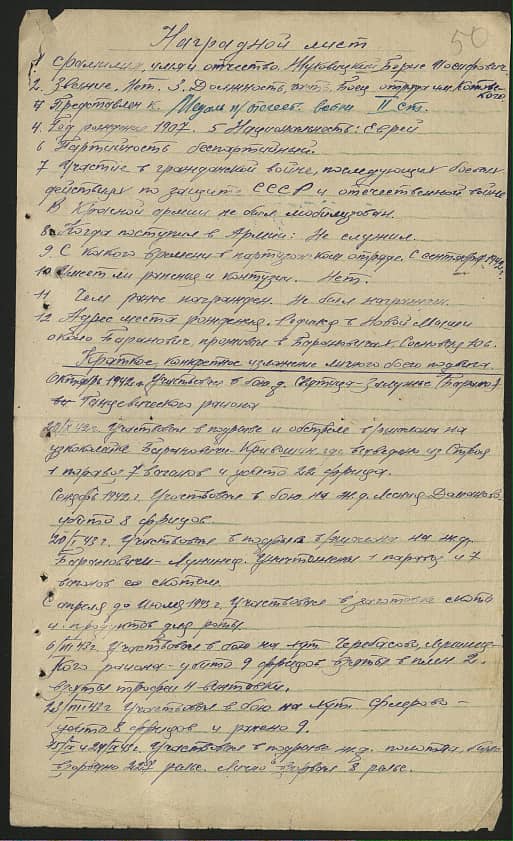 50
Наградной лист
1. Фамилия, имя и отчество. Жуховицкий Борис Иосифович.
2. Звание. Нет. 3. Должность, часть. Боец отряда им Котовского
Представлен к Медали п/отечеств. войны II ст.
4. Год рождения 1907. 5 Национальность: Еврей
6 Партийность беспартийный.
7 Участие в гражданской войне, последующих боевых
действиях по защите СССР и отечественной войне
В Красной армии не был мобилизован.
8. Когда поступил в Армию: Не служил.
9. С какого времени в партизанском отряде. С сентября 1942 г.
10 Имеет ли ранения и контузии. Нет.
11 Чем ранее награжден. Не был награжден.
12 Адрес места рождения. Родился в Новой Мыши
около Баранович, проживал в Барановичах
Краткое, конкретное изложение личного боево подвига.
Октябрь 1942 г. Участвовал в бою д. Святица-
Ганцевического района
Участвовал в подрыве и обстреле эшелона на
узкоколейке Барановичи-Кривошин, где выведено из строя
1 паравоз 7 вагонов и убито 22 фрица.
1942 г. Участвовал в бою на ж.д.
убито 8 фрицов.
Участвовал в подрыве эшелона на ж.д.
Барановичи-Лунинец. Уничтожили 1 паравоз и 7
вагонов со скотом.
С апреля до июля 1943 г. Участвовал в заготовке скота
и продуктов для роты.
Участвовал в бою на пути
района - убито 9 фрицов взяты в плен 2.
взяты трофеи 4 винтовки.
Участвовал в бою на пути
убито 8 фрицов и ранено 9.
Участвовал в подрыве ж.д. полотна, было
взорвано рельс. Лично взорвал 8 рельс.